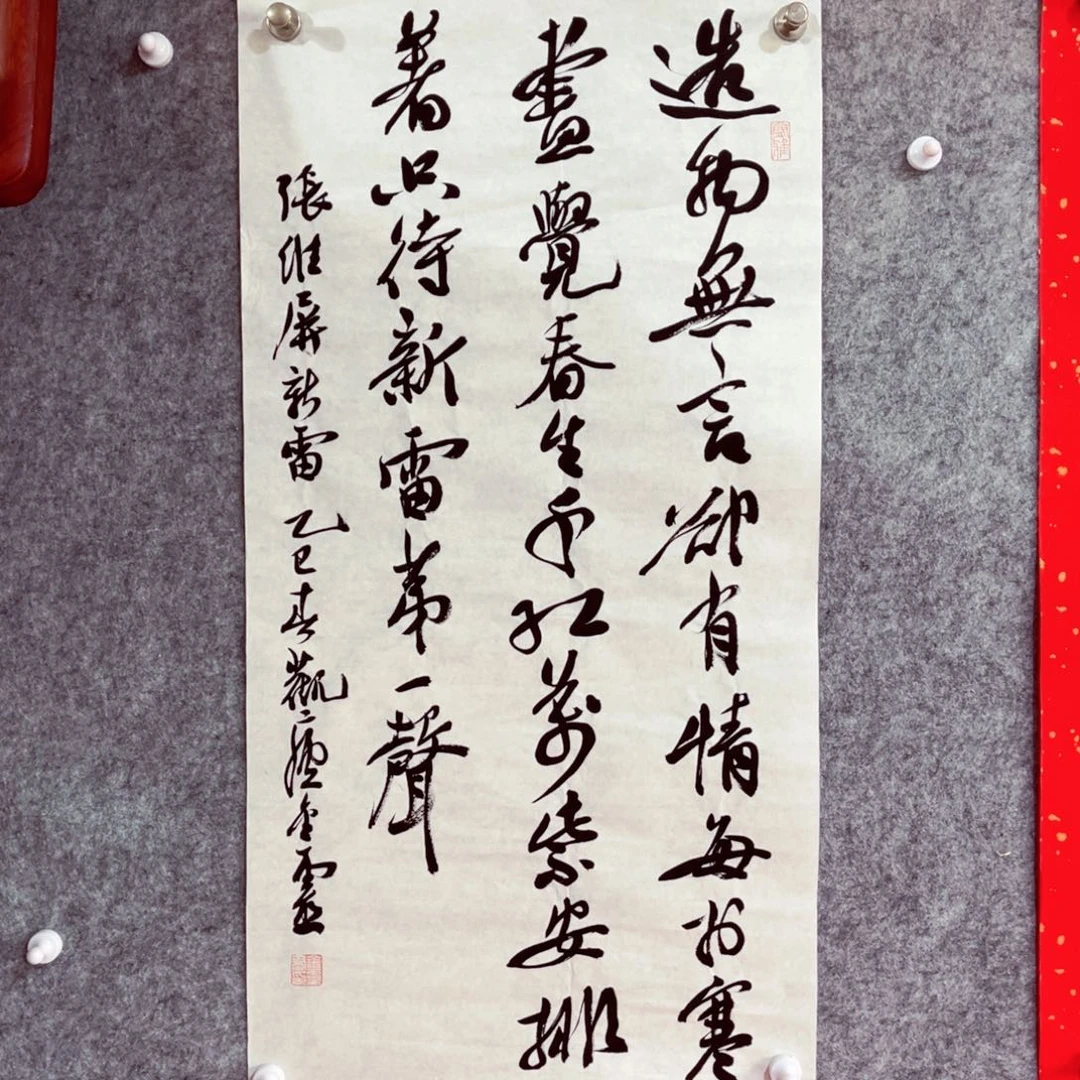 造物無言卻有情每於寒
盡覺春生千紅萬紫安排
著只待新雷第一聲
張維屏新雷 乙巳春觀